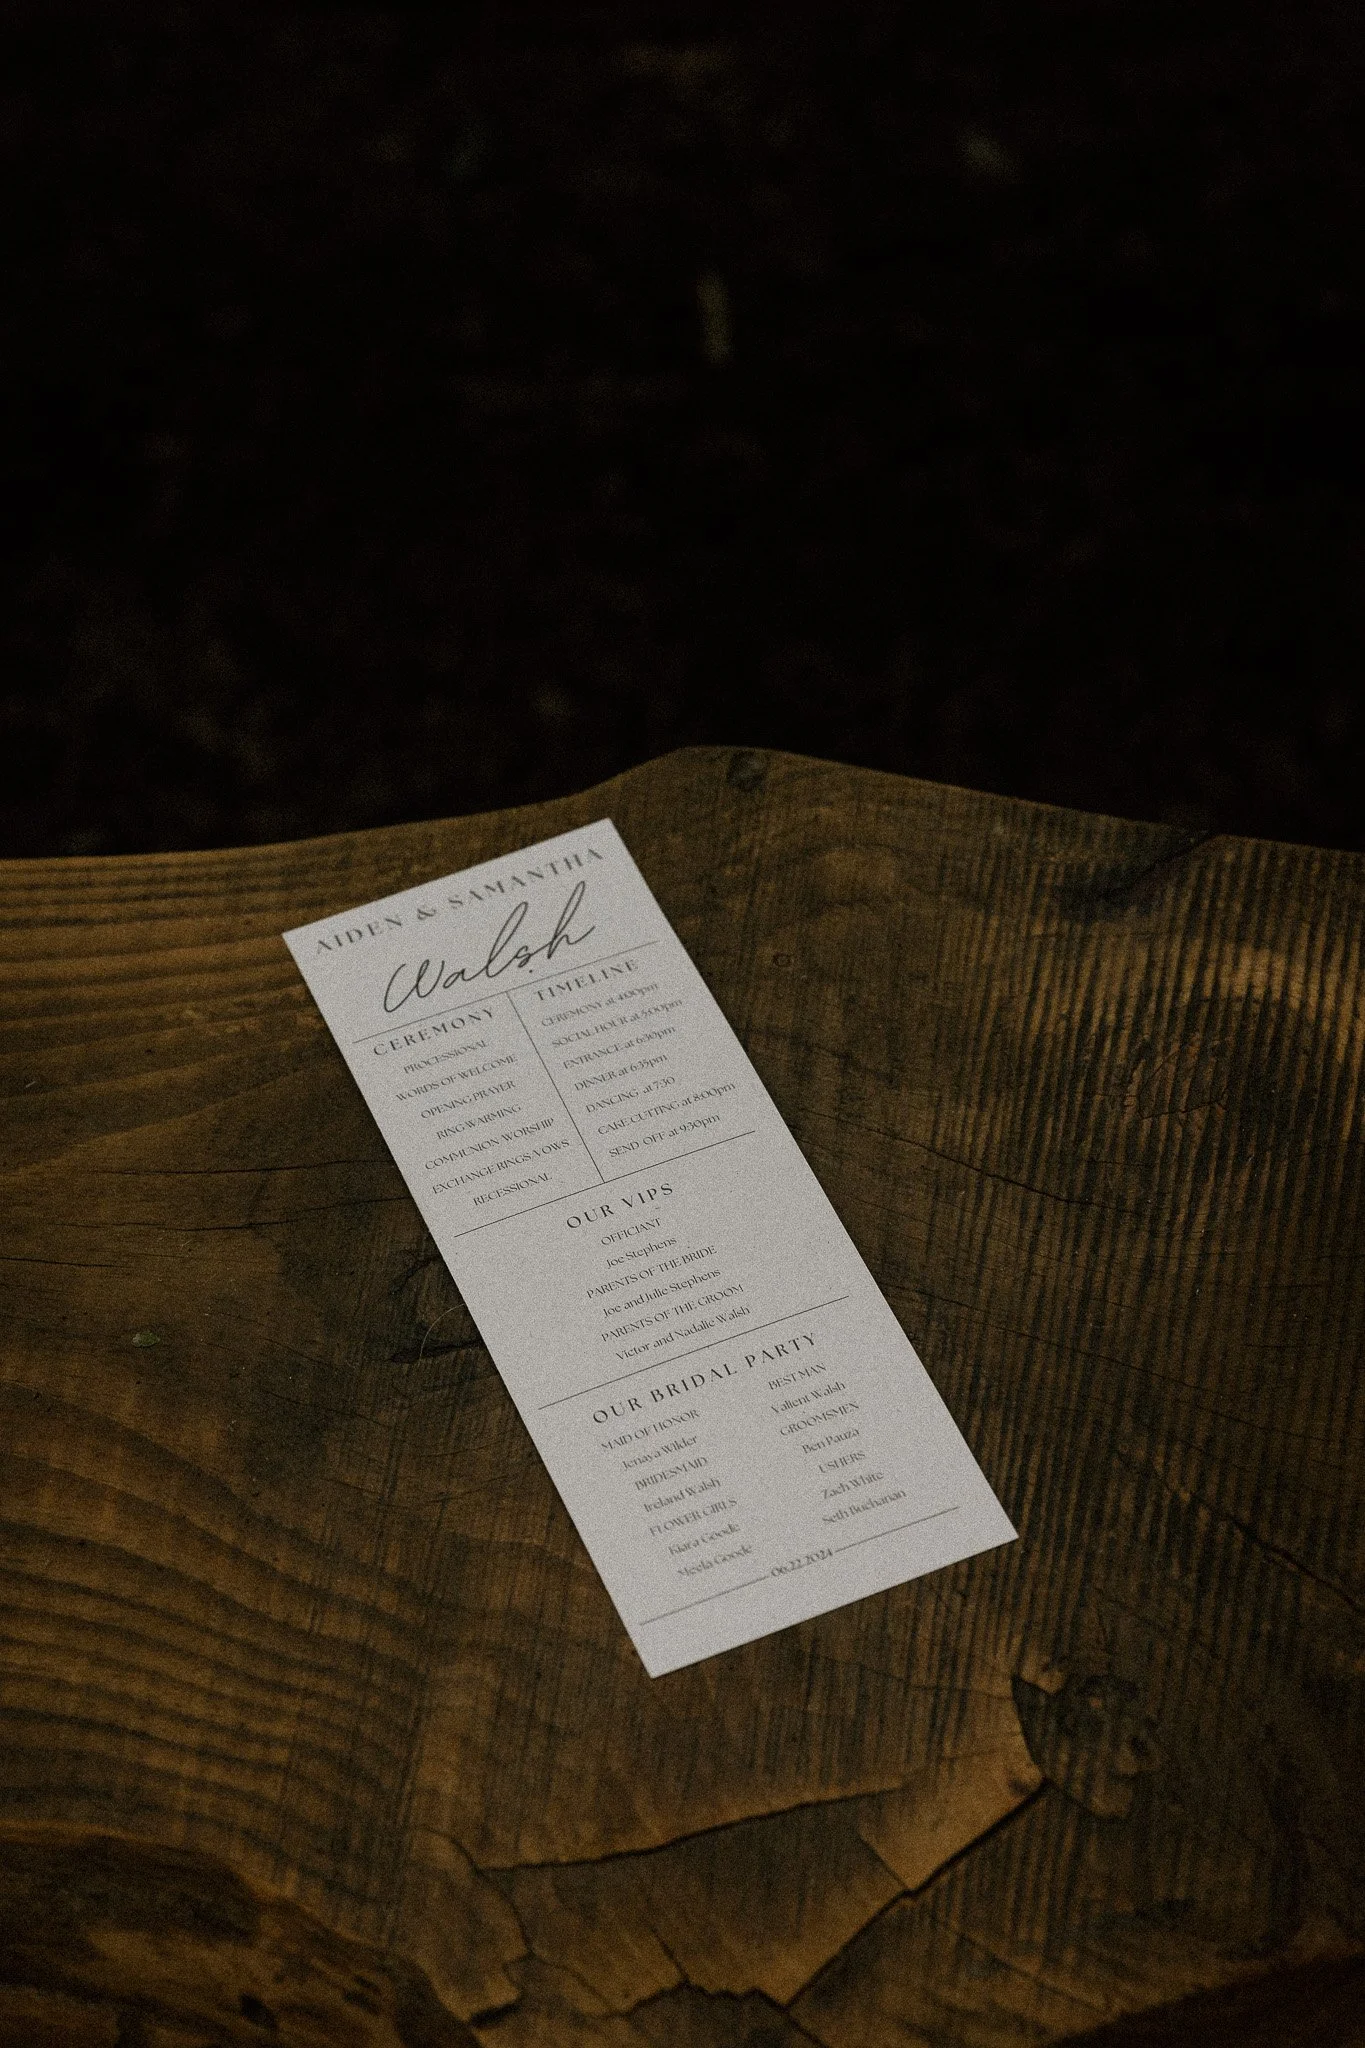 AIDEN & SAMANTHA
Walsh
CEREMONY
PROCESSIONAL
WORDS OF WELCOME
OPENING PRAYER
RING WARMING
COMMUNION/WORSHIP
EXCHANGE RINGS/VOWS
RECESSIONAL
TIMELINE
CEREMONY at 4:00pm
SOCIAL HOUR at 5:00pm
ENTRANCE at 6:30pm
DINNER at 6:35pm
DANCING at 7:30
CAKE CUTTING at 8:00pm
SEND OFF at 9:30pm
OUR VIPS
OFFICIANT
Joe Stephens
PARENTS OF THE BRIDE
Joe and Julie Stephens
PARENTS OF THE GROOM
Victor and Nadalie Walsh
OUR BRIDAL PARTY
MAID OF HONOR
Jenaya Wilder
BRIDESMAID
Ireland Walsh
FLOWER GIRLS
Kiara Goode
Meela Goode
BEST MAN
Valient Walsh
GROOMSMEN
Ben Pauza
USHERS
Zach White
Seth Buchanan
06.22.2024